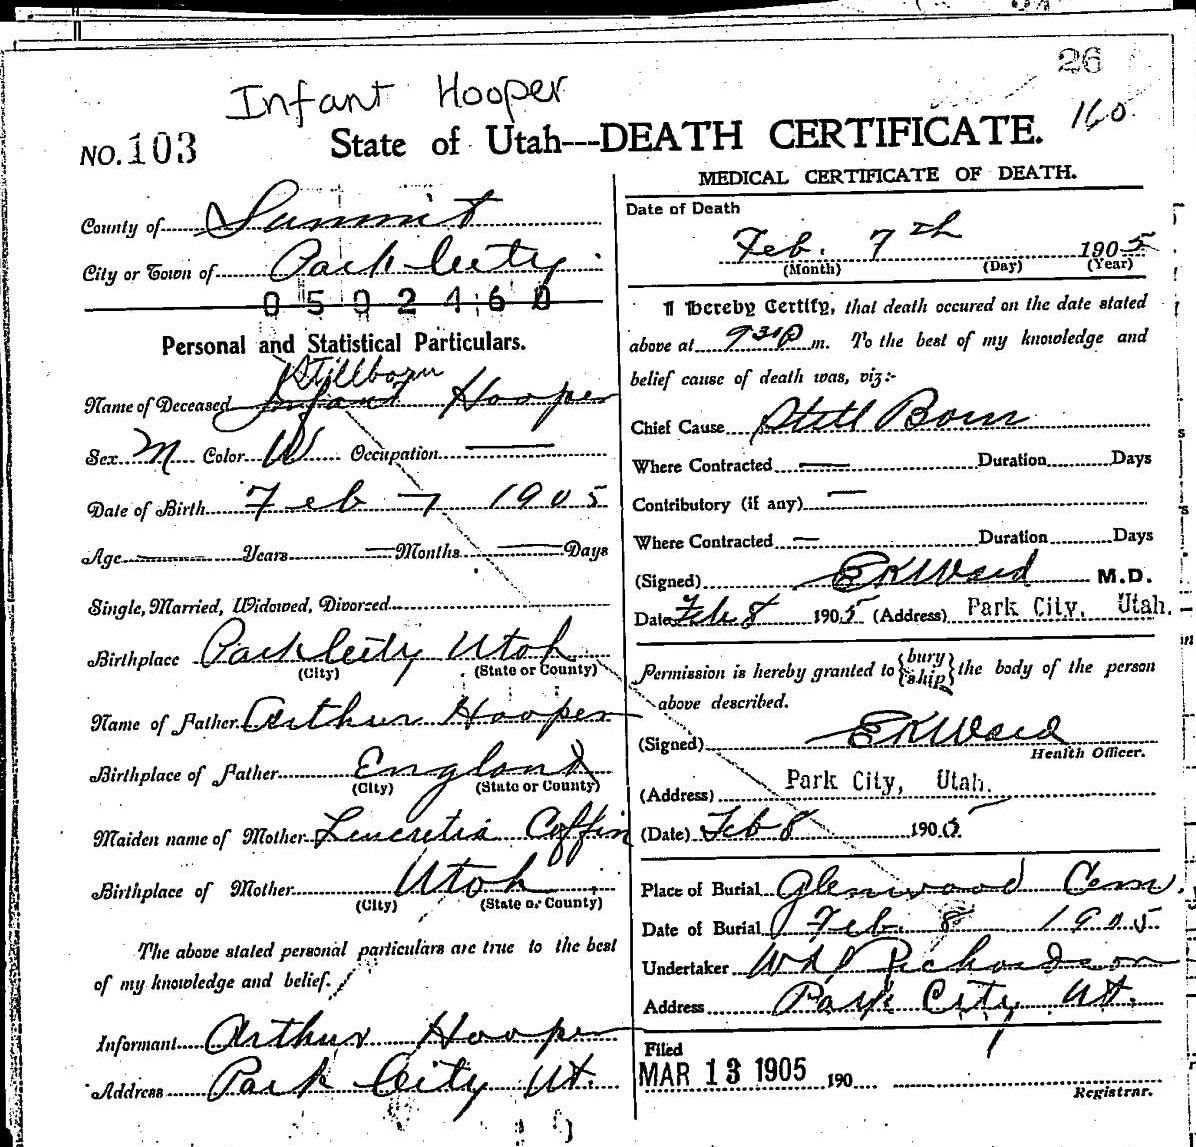 26
Infant Hooper
160
NO. 103
State of Utah---DEATH CERTIFICATE.
County of Summit
City or Town of Park City
0502460
Personal and Statistical Particulars.
Stillborn
Name of Deceased Infant Hooper
Sex M Color W Occupation
Date of Birth Feb 7 1905
Age Years Months Days
Single, Married, Widowed, Divorced
Birthplace Park City Utah
(City) (State or County)
Name of Father Arthur Hooper
Birthplace of Father England
(City) (State or County)
Maiden name of Mother Leucretia Coffin
Birthplace of Mother Utah
(City) (State or County)
The above stated personal particulars are true to the best
of my knowledge and belief.
Informant Arthur Hooper
Address Park City Ut.
MEDICAL CERTIFICATE OF DEATH.
Date of Death
Feb. 7th 1905
(Month) (Day) (Year)
I hereby Certify, that death occured on the date stated
above at 931P m. To the best of my knowledge and
belief cause of death was, viz:-
Chief Cause Still Born
Where Contracted Duration Days
Contributory (if any)
Where Contracted Duration Days
(Signed) EKWard M.D.
Date Feb 8 1905 (Address) Park City, Utah.
Permission is hereby granted to {bury
ship} the body of the person
above described.
(Signed) EKWard
Health Officer.
(Address) Park City, Utah.
(Date) Feb 8 1905
Place of Burial Glenwood Cem.
Date of Burial Feb. 8 1905
Undertaker Richardson
Address Park City Ut.
Filed
MAR 13 1905 190
Registrar.